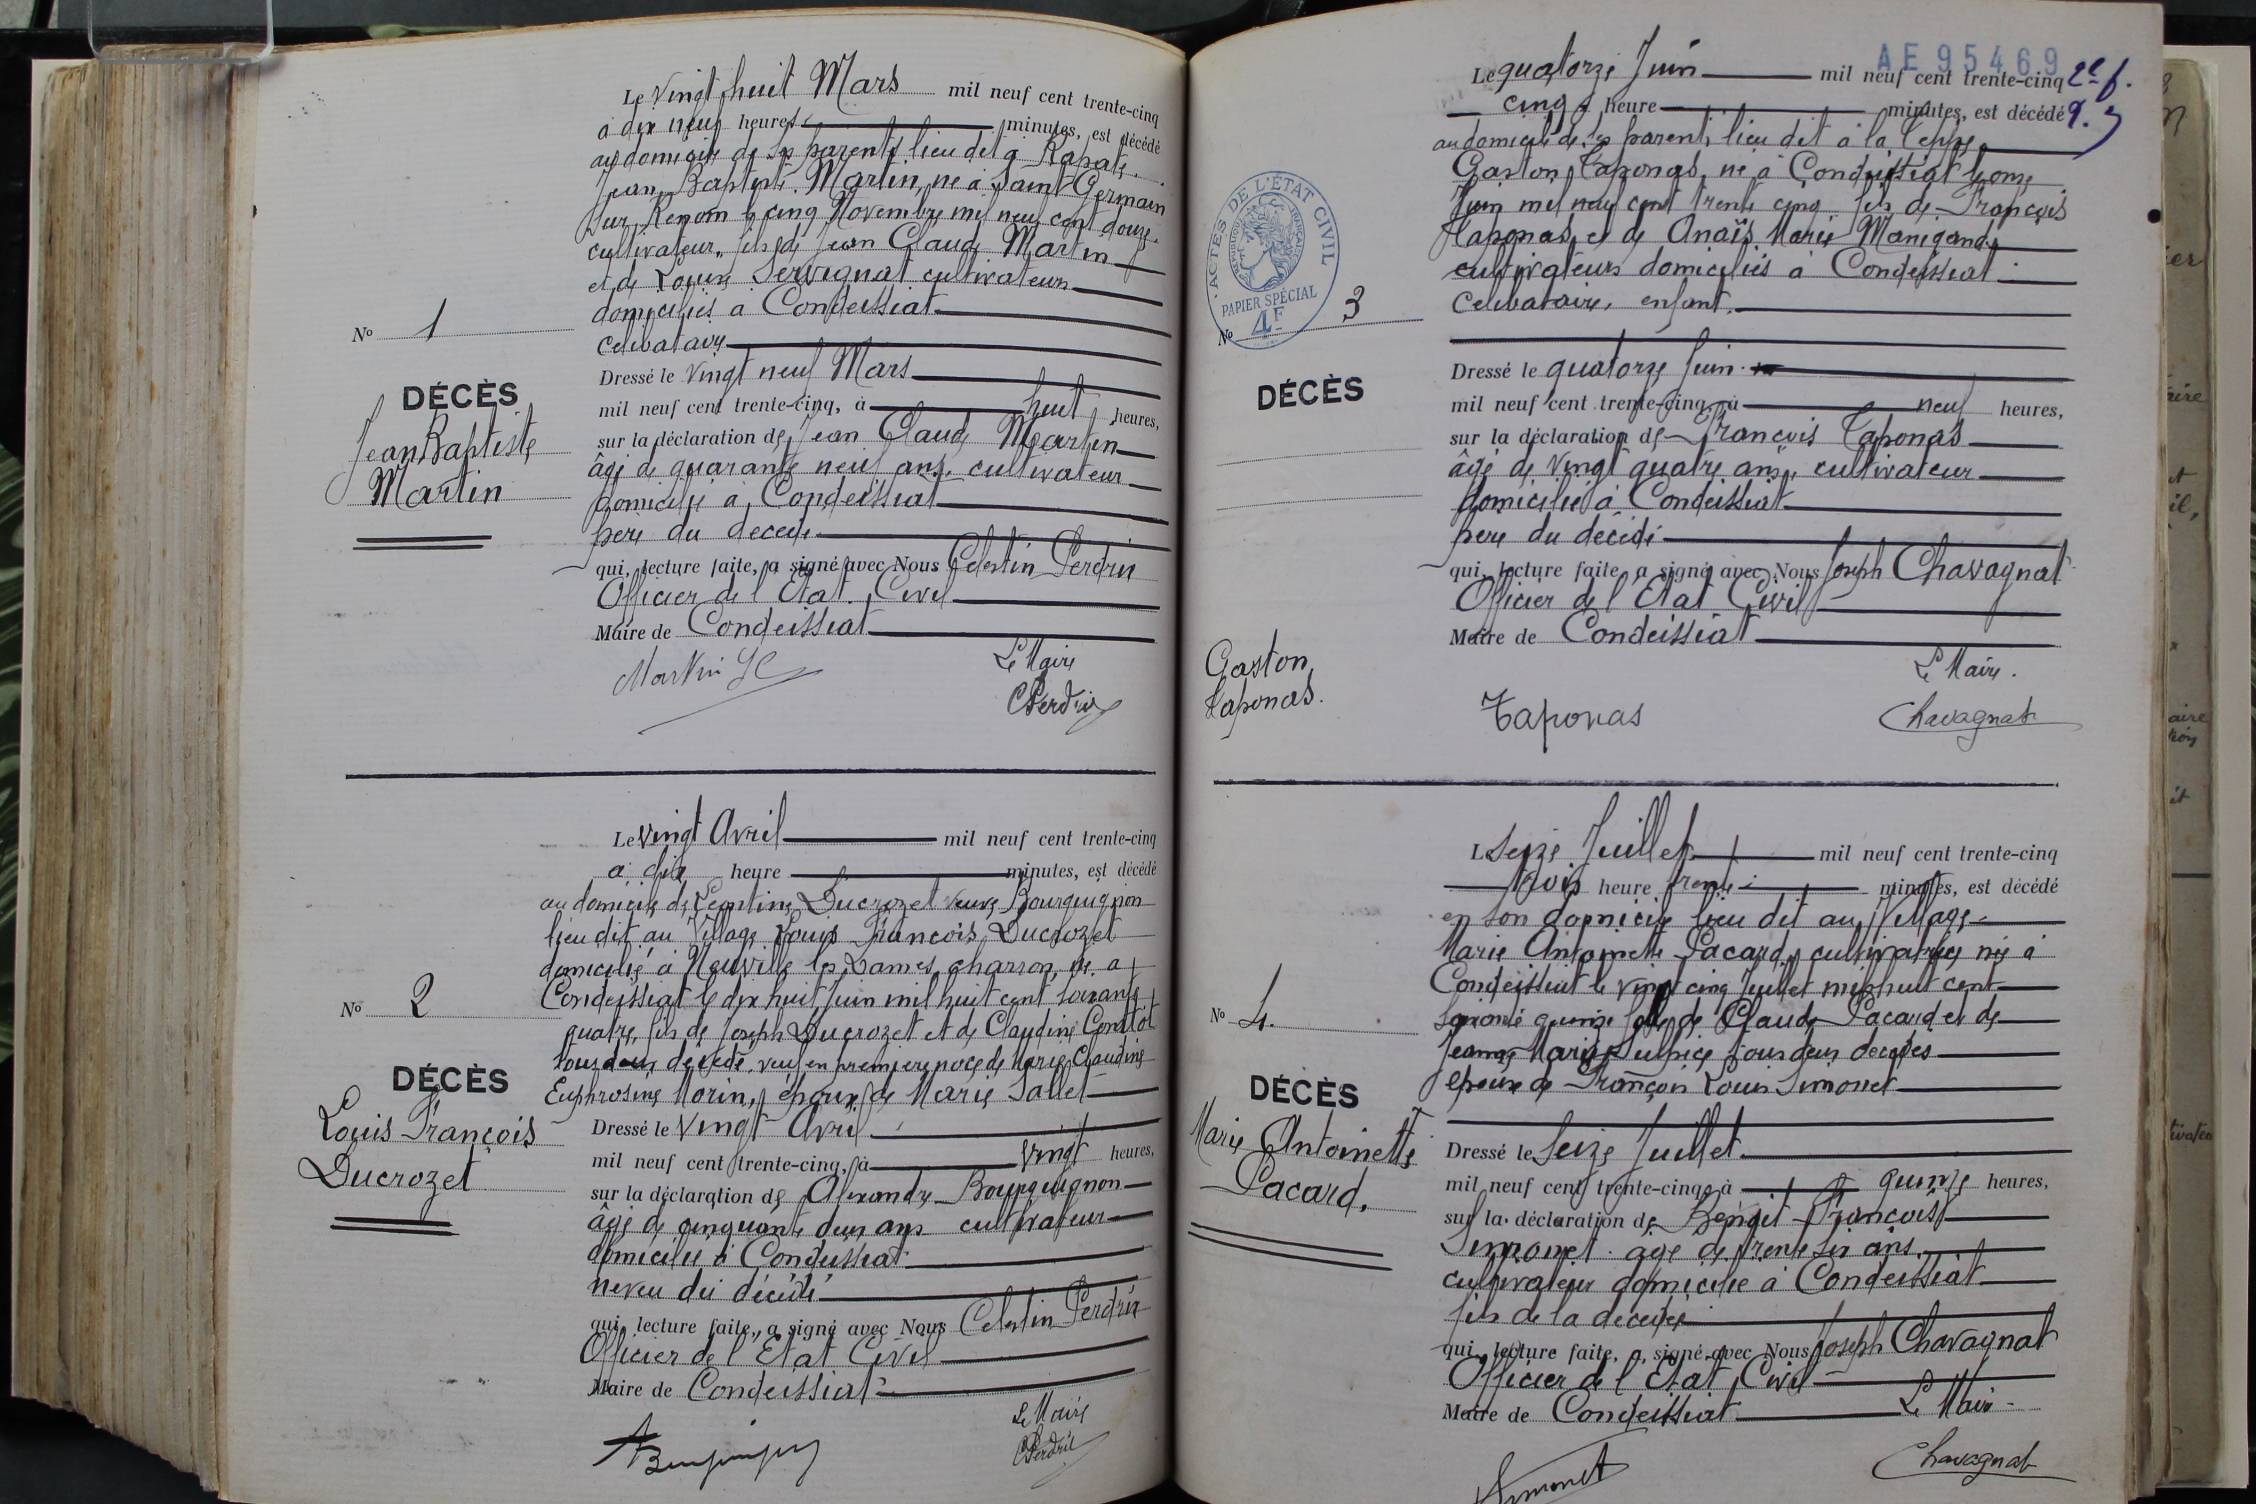 Le vingt huit Mars mil neuf cent trente-cinq
à dix neuf heures minutes, est décédé
au domicile de ses parents lieu dit à
Jean Baptiste Martin, né à Saint Germain
sur Renom le cinq Novembre mil neuf cent douze
cultivateur, fils de Jean Claude Martin
et de Louise Servignat cultivateurs
domiciliés à Condeissiat
célibataire
Nº 1
DÉCÈS
Jean Baptiste
Martin
Dressé le vingt neuf Mars
mil neuf cent trente-cinq, à huit heures,
sur la déclaration de Jean Claude Martin
âgé de quarante neuf ans, cultivateur
domicilié à Condeissiat
père du décédé
qui, lecture faite, a signé avec Nous Celestin Perdrix
Officier de l'Etat Civil
Maire de Condeissiat
Martin JC
Le Maire
CPerdrix
Le vingt Avril mil neuf cent trente-cinq
à dix heure minutes, est décédé
au domicile de Léontine Ducrozet veuve Bourguignon
lieu dit au Village Louis François Ducrozet
domicilié à Neuville les Dames, charron, né à
Condeissiat le dix huit Juin mil huit cent soixante
quatre, fils de Joseph Ducrozet et de Claudine
tous deux décédé, veuf en première noce de Marie Claudine
Euphrosine Morin, époux de Marie Sallet
Nº 2
DÉCÈS
Louis François
Ducrozet
Dressé le vingt Avril
mil neuf cent trente-cinq, à vingt heures,
sur la déclaration de Alexandre Bourguignon
âgé de cinquante deux ans cultivateur
domicilié à Condeissiat
neveu du décédé
qui, lecture faite, a signé avec Nous Celestin Perdrix
Officier de l'Etat Civil
Maire de Condeissiat
Le Maire
CPerdrix
AE 95469
Le quatorze Juin mil neuf cent trente-cinq 2e f.
cinq heure minutes, est décédé 9.
au domicile de ses parents lieu dit à la Teppe
Gaston Taponas, né à Condeissiat le onze
Juin mil neuf cent trente cinq fils de François
Taponas et de Anaïs Marie Manigand
cultivateurs domiciliés à Condeissiat
célibataire, enfant.
ACTES DE L'ÉTAT CIVIL
RÉPUBLIQUE FRANÇAISE
PAPIER SPÉCIAL
4F
Nº 3
DÉCÈS
Gaston
Taponas.
Dressé le quatorze Juin
mil neuf cent trente-cinq, à neuf heures,
sur la déclaration de François Taponas
âgé de vingt quatre ans, cultivateur
domicilié à Condeissiat
père du décédé
qui, lecture faite, a signé avec Nous Joseph Chavagnat
Officier de l'Etat Civil
Maire de Condeissiat
Le Maire.
Taponas
Chavagnat
Le seize Juillet mil neuf cent trente-cinq
trois heure trente minutes, est décédé
en son domicile lieu dit au Village
Marie Antoinette Pacard, cultivatrice née à
Condeissiat le vingt cinq Juillet mil huit cent
soixante quinze fille de Claude Pacard et de
Jeanne Marie Sulpice tous deux décédés
épouse de François Louis Simonet
Nº 4.
DÉCÈS
Marie Antoinette
Pacard.
Dressé le Seize Juillet
mil neuf cent trente-cinq, à quinze heures,
sur la déclaration de Benoit François
Simonet âgé de trente six ans
cultivateur domicilié à Condeissiat
fils de la décédée
qui, lecture faite, a signé avec Nous Joseph Chavagnat
Officier de l'Etat Civil
Maire de Condeissiat Le Maire
Simonet
Chavagnat